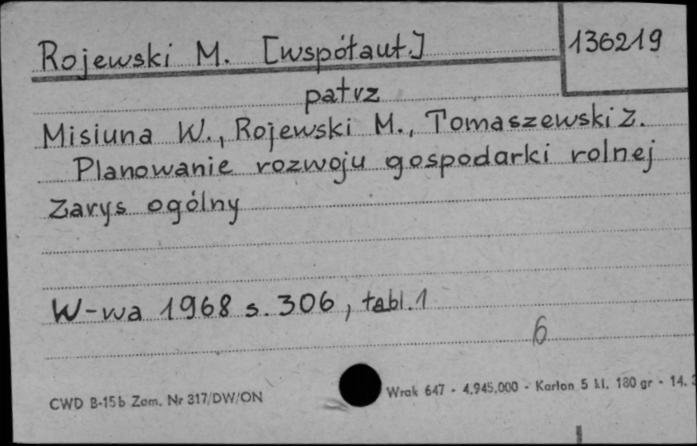 Rojewski M. [współaut.] 136219
patrz
Misiuna W., Rojewski M., Tomaszewski Z.
Planowanie rozwoju gospodarki rolnej
Zarys ogólny
W-wa 1968 s. 306, tabl. 1
6
CWD B-15b Zam. Nr 317/DW/ON Wrak 647 - 4.945.000 - Karton 5 kl. 180 gr - 14.